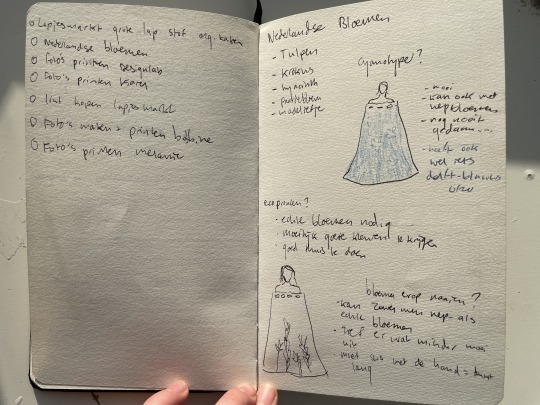 O Lapjesmarkt grote lap stof org. katoen
O Nederlandse bloemen
O Foto's printen designlab
O Foto's printen
O lint kopen lapjesmarkt
O Foto's maken + printen
O Foto's printen melanie
Nederlandse Bloemen
- Tulpen
- Krokus
- hyacinth
- paardebloem
- madeliefje
Cyanotype?
- mooi
- kan ook met nepbloemen
- nog nooit gedaan...
- heeft ook wel iets delft-blauws
ecoprinten?
- echte bloemen nodig
- moeilijk goede kleuren te krijgen
- goed thuis te doen
bloemen erop naaien?
- kan zowel met nep- als echte bloemen
- ziet er wat minder mooi uit
- moet met de hand = duurt lang